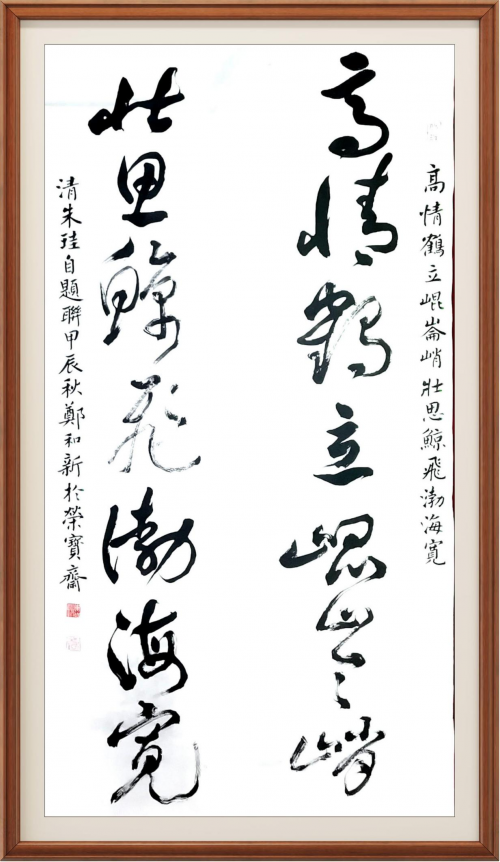 高情鶴立崐崙峭壯思鯨飛渤海寬
高情鶴立崐崙峭
壯思鯨飛渤海寬
清朱珪自題聯甲辰秋鄭和新於榮寶齋